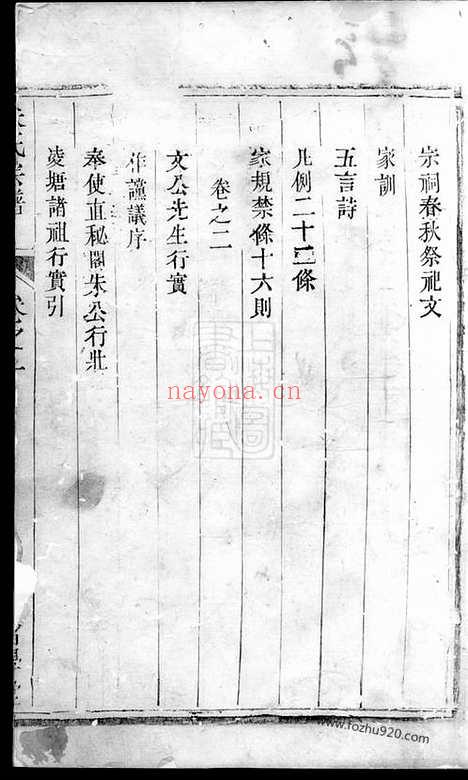 宗祠春秋祭祀文
家訓
五言詩
凡例二十三條
家規禁條十六則
卷之二
文公先生行實
謹議序
奉使直秘閣朱公行狀
凌塘諸祖行實引
氏宗譜
nayona.cn
www.fozhu920.com